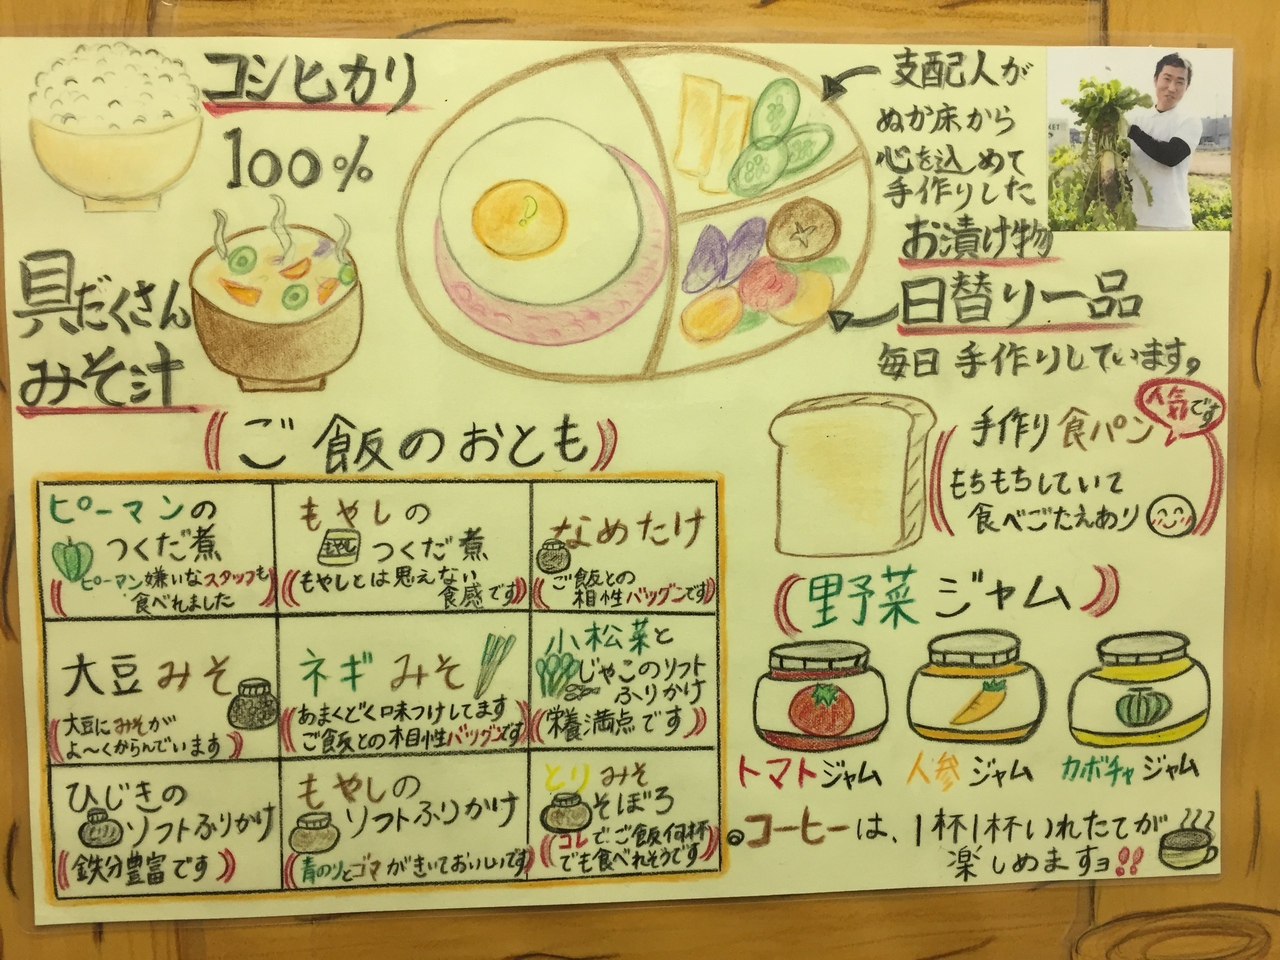 コシヒカリ
100%
具だくさん
みそ汁
支配人が
ぬか床から
心を込めて
手作りした
お漬け物
日替り一品
毎日 手作りしています。
人気です
手作り食パン
もちもちしていて
食べごたえあり
ご飯のおとも
ピーマンの
つくだ煮
ピーマン嫌いなスタッフも
食べれました
もやしの
もやし
つくだ煮
もやしとは思えない
食感です
なめたけ
ご飯との
相性バツグンです
大豆みそ
大豆にみそが
よ〜くからんでいます
ネギみそ
あまくどく味つけしてます
ご飯との相性バツグンです
小松菜と
じゃこのソフト
ふりかけ
栄養満点です
ひじきの
ソフトふりかけ
鉄分豊富です
もやしの
ソフトふりかけ
青のりとゴマがきいておいしいです
とりみそ
そぼろ
コレでご飯何杯
でも食べれそうです
野菜ジャム
トマトジャム
人参ジャム
カボチャジャム
コーヒーは、1杯1杯いれたてが
楽しめますョ!!